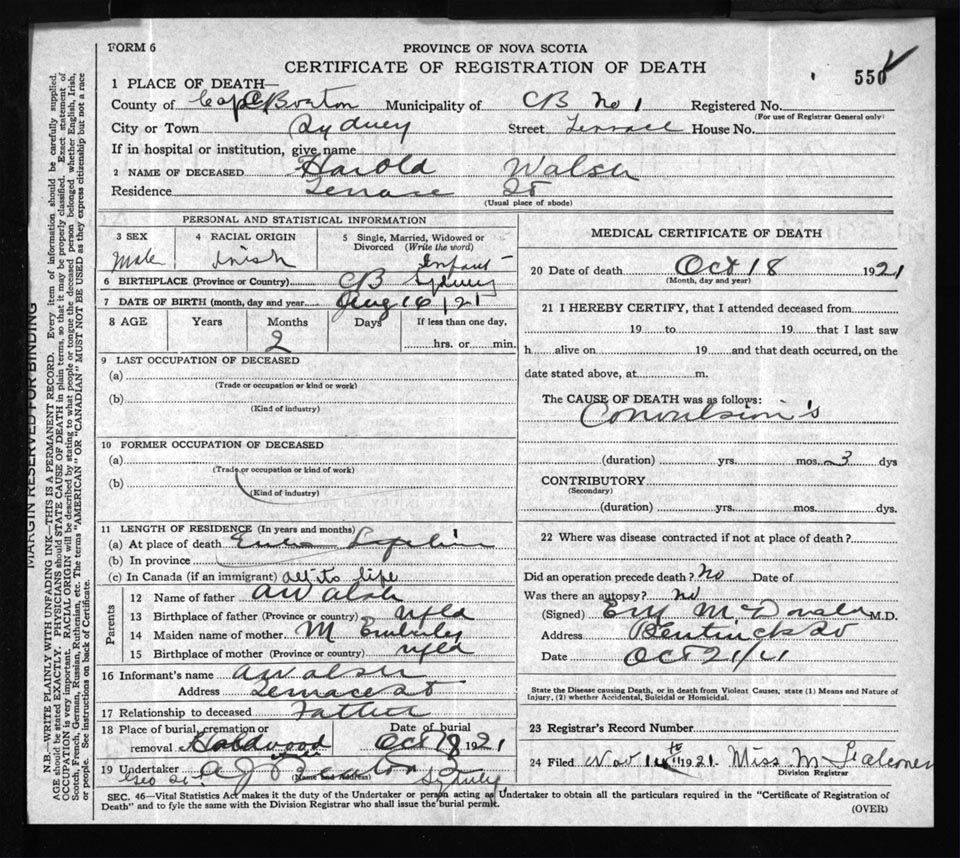 FORM 6
PROVINCE OF NOVA SCOTIA
CERTIFICATE OF REGISTRATION OF DEATH
550
1 PLACE OF DEATH—
County of Cape Breton Municipality of CB No 1 Registered No.
(For use of Registrar General only)
City or Town Sydney Street Terrace House No.
If in hospital or institution, give name
2 NAME OF DECEASED Harold Walsh
Residence Terrace St
(Usual place of abode)
PERSONAL AND STATISTICAL INFORMATION
3 SEX Male
4 RACIAL ORIGIN Irish
5 Single, Married, Widowed or Divorced (Write the word) Infant
6 BIRTHPLACE (Province or Country) CB Sydney
7 DATE OF BIRTH (month, day and year) Aug 16/21
8 AGE Years Months 2 Days If less than one day, hrs. or min.
9 LAST OCCUPATION OF DECEASED
(a)
(Trade or occupation or kind or work)
(b)
(Kind of industry)
10 FORMER OCCUPATION OF DECEASED
(a)
(Trade or occupation or kind of work)
(b)
(Kind of industry)
11 LENGTH OF RESIDENCE (In years and months)
(a) At place of death
(b) In province
(c) In Canada (if an immigrant) all its life
Parents
12 Name of father A Walsh
13 Birthplace of father (Province or country) Nfld
14 Maiden name of mother M Emberley
15 Birthplace of mother (Province or country) Nfld
16 Informant's name A Walsh
Address Terrace St
17 Relationship to deceased Father
18 Place of burial, cremation or removal Date of burial Oct 19 1921
19 Undertaker A J Beaton Sydney
(Name and Address)
MEDICAL CERTIFICATE OF DEATH
20 Date of death Oct 18 1921
(Month, day and year)
21 I HEREBY CERTIFY, that I attended deceased from
19 to 19 that I last saw
h alive on 19 and that death occurred, on the
date stated above, at m.
The CAUSE OF DEATH was as follows:
Convulsion's
(duration) yrs. mos. 3 dys
CONTRIBUTORY
(Secondary)
(duration) yrs. mos. dys.
22 Where was disease contracted if not at place of death?
Did an operation precede death? No Date of
Was there an autopsy? no
(Signed) McDonald M.D.
Address Bentinck St
Date Oct 21/21
State the Disease causing Death, or in death from Violent Causes, state (1) Means and Nature of
Injury, (2) whether Accidental, Suicidal or Homicidal.
23 Registrar's Record Number
24 Filed Nov 14th 1921. Miss M Falconer
Division Registrar
SEC. 46—Vital Statistics Act makes it the duty of the Undertaker or person acting as Undertaker to obtain all the particulars required in the "Certificate of Registration of
Death" and to fyle the same with the Division Registrar who shall issue the burial permit.
(OVER)
MARGIN RESERVED FOR BINDING
N.B.—WRITE PLAINLY WITH UNFADING INK—THIS IS A PERMANENT RECORD. Every item of information should be carefully supplied.
AGE should be stated EXACTLY. PHYSICIANS should STATE CAUSE OF DEATH in plain terms, so that it may be properly classified. Exact statement of
OCCUPATION is very important. RACIAL ORIGIN will be described by stating to what people or tongue the deceased person belonged whether English, Irish,
Scotch, French, German, Russian, Ruthenian, etc. The terms "AMERICAN" OR "CANADIAN" MUST NOT BE USED as they express citizenship but not a race
or people. See instructions on back of Certificate.